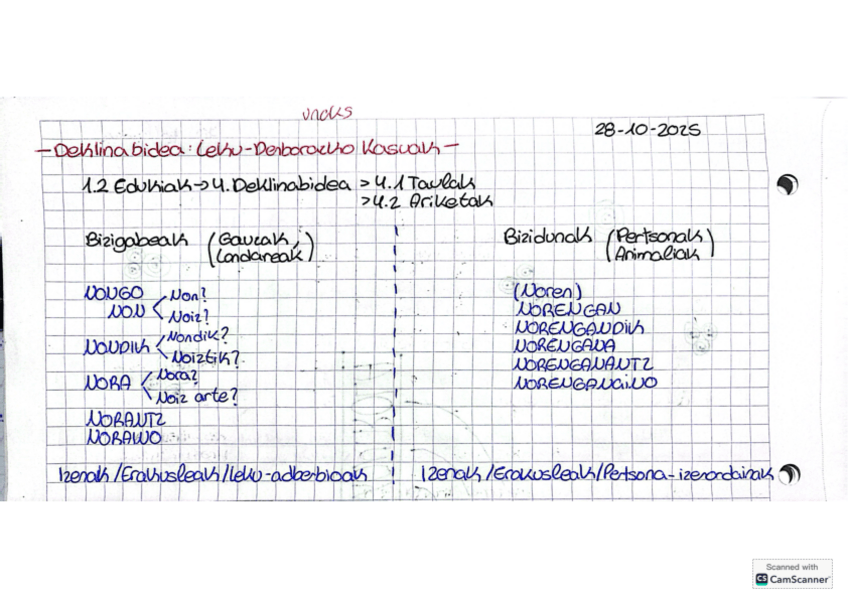 28-10-2025
- Deklinabidea: Leku-Denborazko Kasuak -
1.2 Edukiak → 4. Deklinabidea > 4.1 Taulak
> 4.2 Ariketak
Bizigabeak (Gauzak, Landareak)
Bizidunak (Pertsonak Animaliak)
NONGO
NON < Non?
Noiz?
NONDIK < Nondik?
Noiztik?
NORA < Nora?
Noiz arte?
NORANTZ
NORAINO
Izenak/Erakusleak/Leku-adberbioak
(Noren)
NORENGAN
NORENGANDIK
NORENGANA
NORENGANANTZ
NORENGANAINO
Izenak/Erakusleak/Pertsona-izenordainak
Scanned with
CS CamScanner